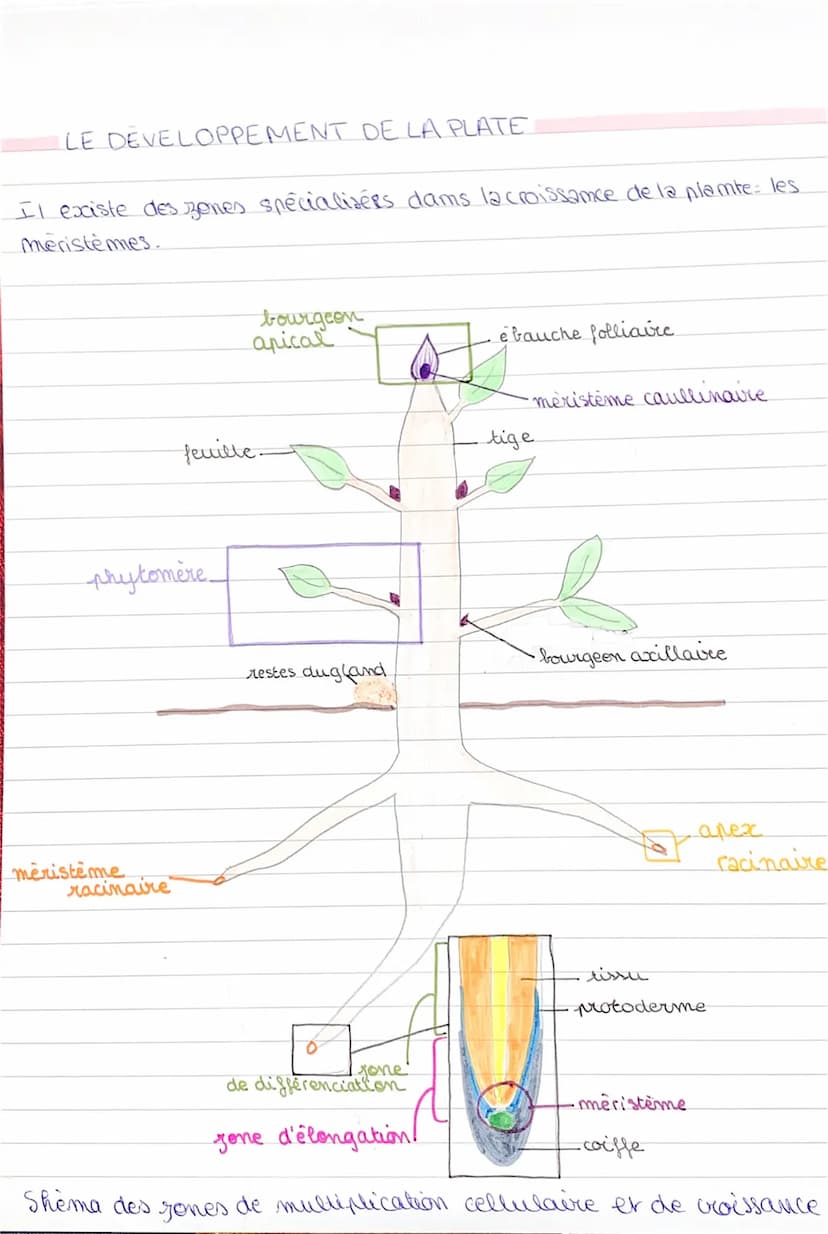 LE DÉVELOPPEMENT DE LA PLATE
Il existe des zones spécialisées dans la croissance de la plante: les
méristèmes.
bourgeon
apical
ébauche folliaire
méristème caullinaire
tige
feuille
phytomère
bourgeon axillaire
restes du gland
apex
racinaire
méristème
racinaire
tissu
protoderme
zone
de différenciation
méristème
zone d'élongation
coiffe
Shéma des zones de multiplication cellulaire et de croissance